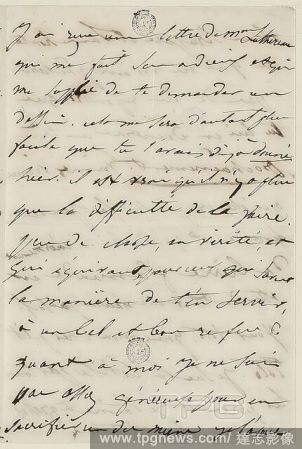 J'ai reçu une lettre de mr
qui me fait son adieux et qui
me supplie de te demander un
dessin. cela me sera d'autant plus
facile que tu l'avais déjà donné
hier. il est vrai qu'il n'y a plus
que la difficulté de la faire.
peu de chose, en vérité et
qui équivaut, pour ceux qui savent
la manière de t'en servir,
à un bel et bon refus.
quant à moi je ne suis
pas assez généreuse pour
sacrifier
TPG
www.tpgnews.com / 達志影像